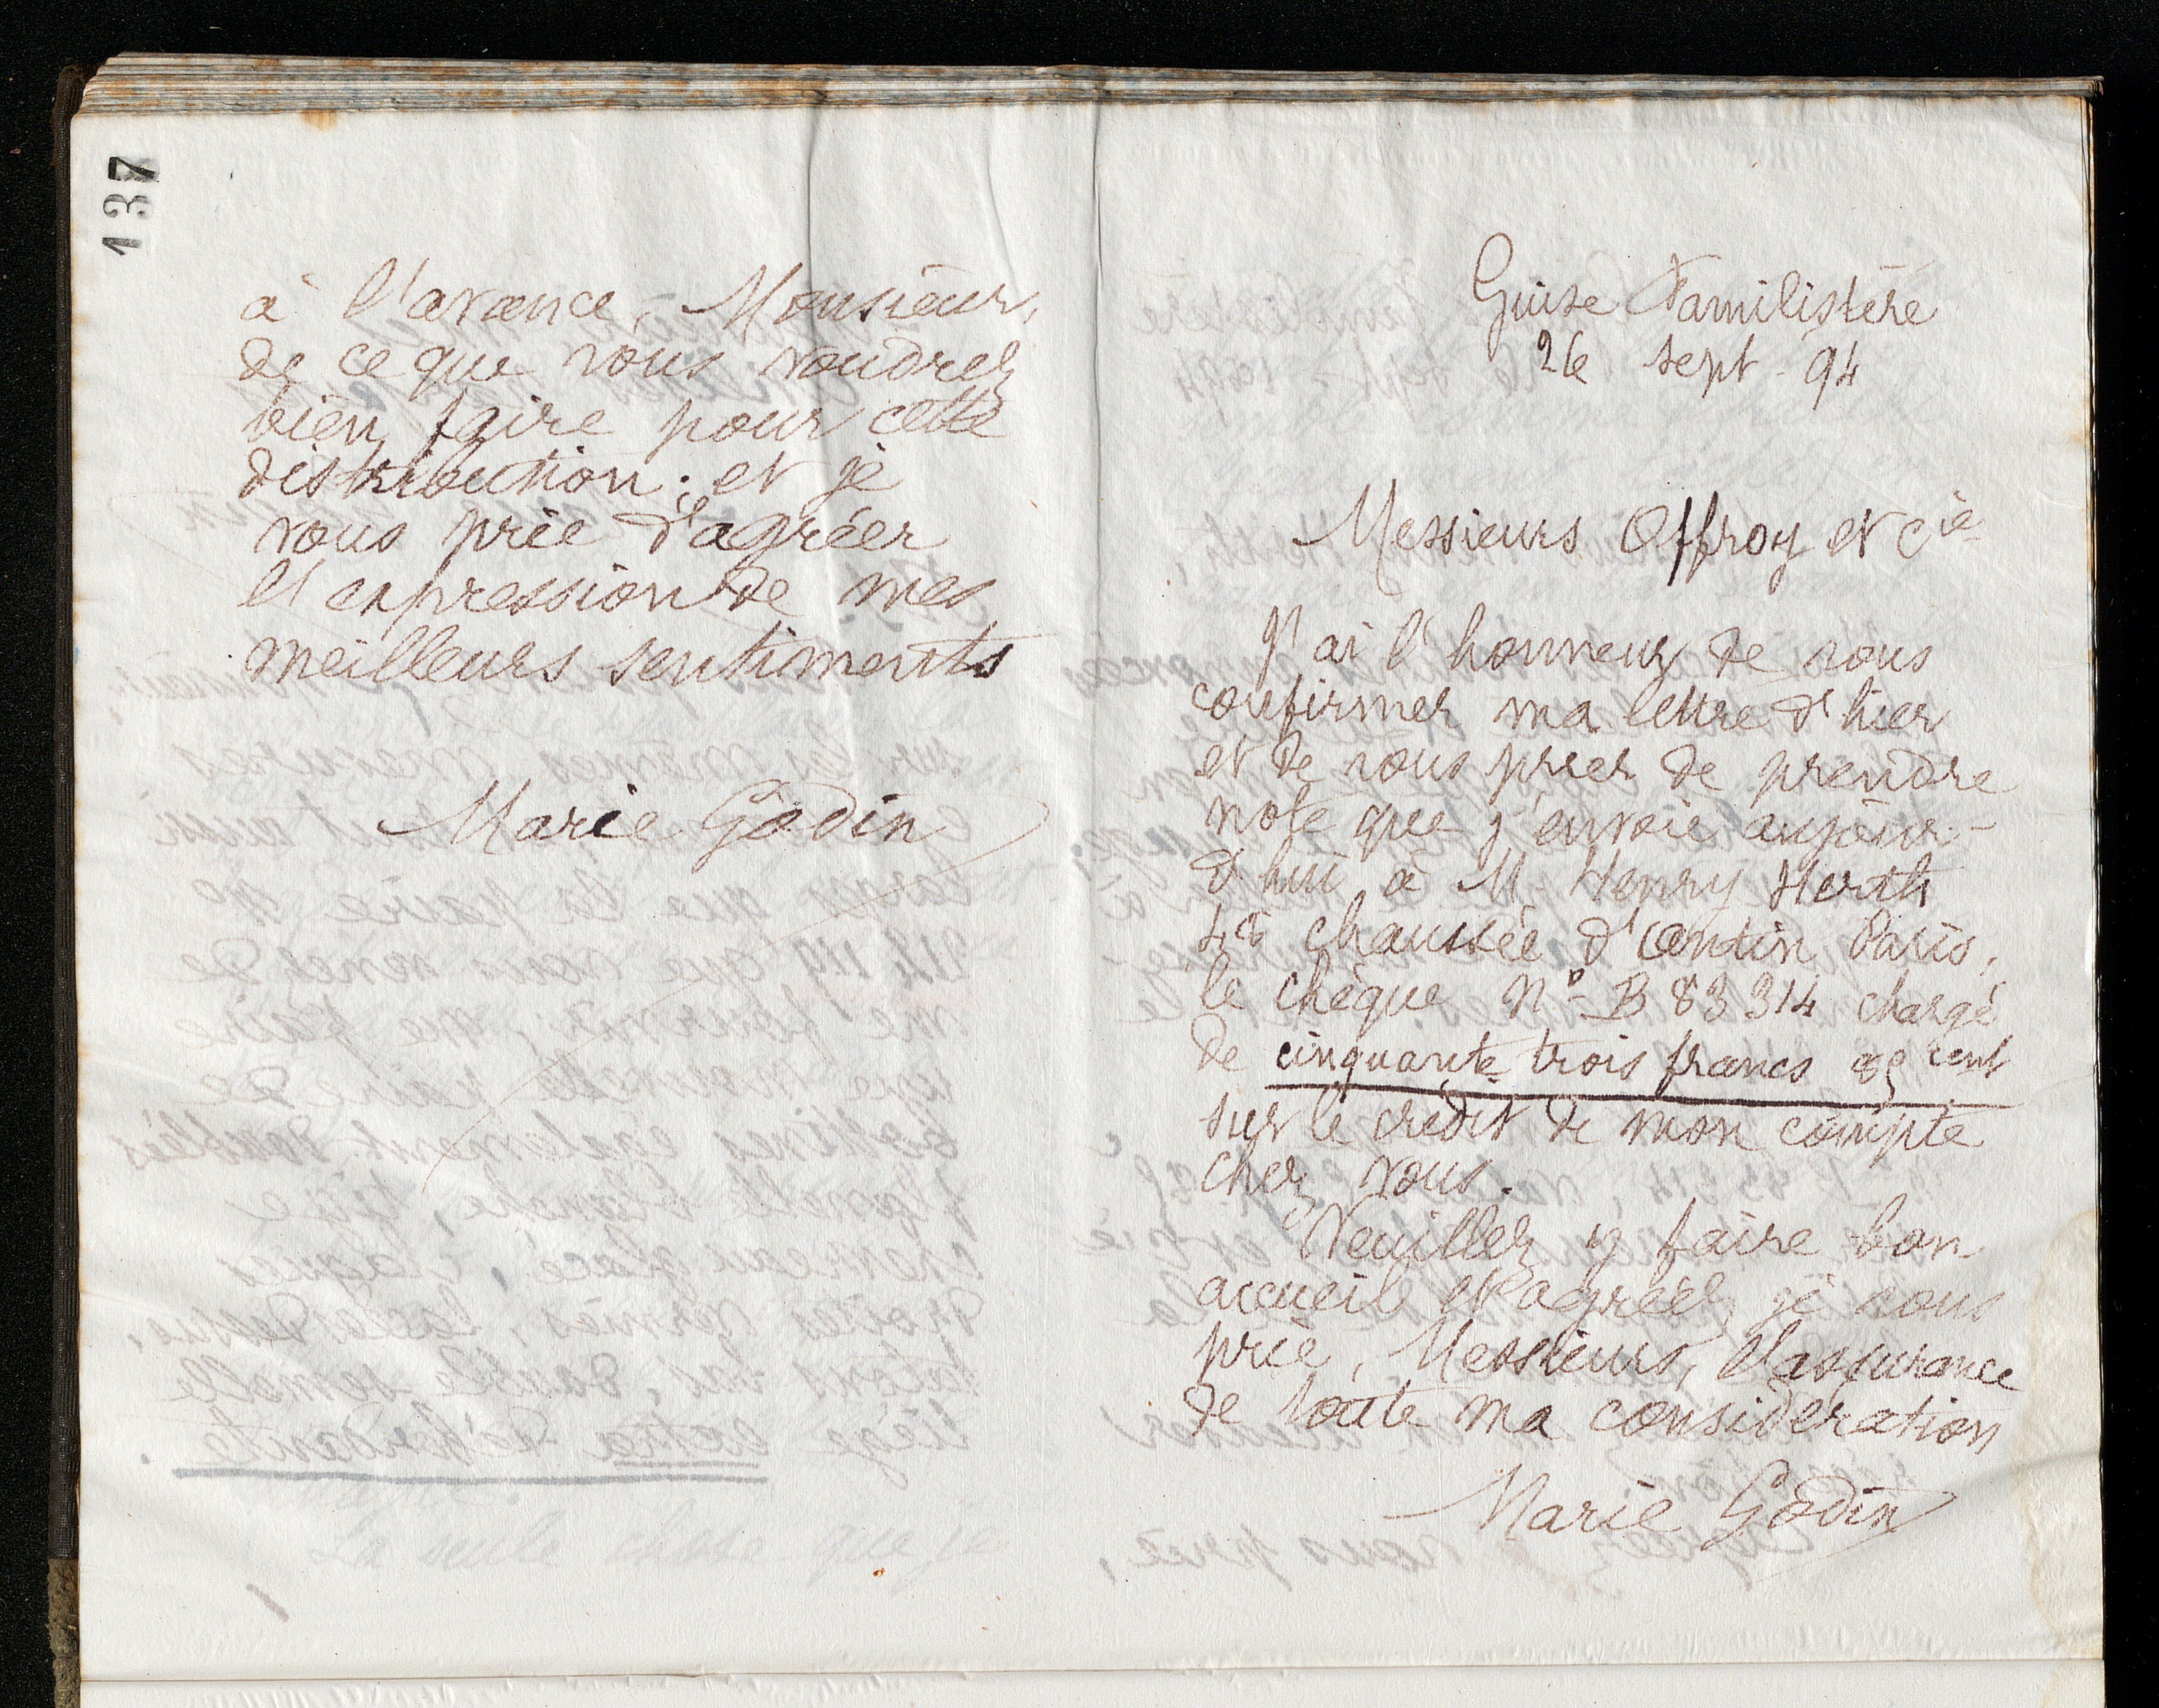 137
à l'avance, Monsieur,
de ce que vous voudrez
bien faire pour cette
distribution ; et je
vous prie d'agréer
l'expression de mes
meilleurs sentiments
Marie Godin
Guise Familistère
26 sept. 94
Messieurs Offroy et Cie
J'ai l'honneur de vous
confirmer ma lettre d'hier
et de vous prier de prendre
note que j'envoie aujour-
d'hui à M. Henry
48 chaussée d'antin Paris,
le chèque No B 83314 chargé
de cinquante trois francs cent
sur le crédit de mon compte
chez vous.
Veuillez y faire bon
accueil et agréer, je vous
prie, Messieurs, l'assurance
de toute ma considération
Marie Godin